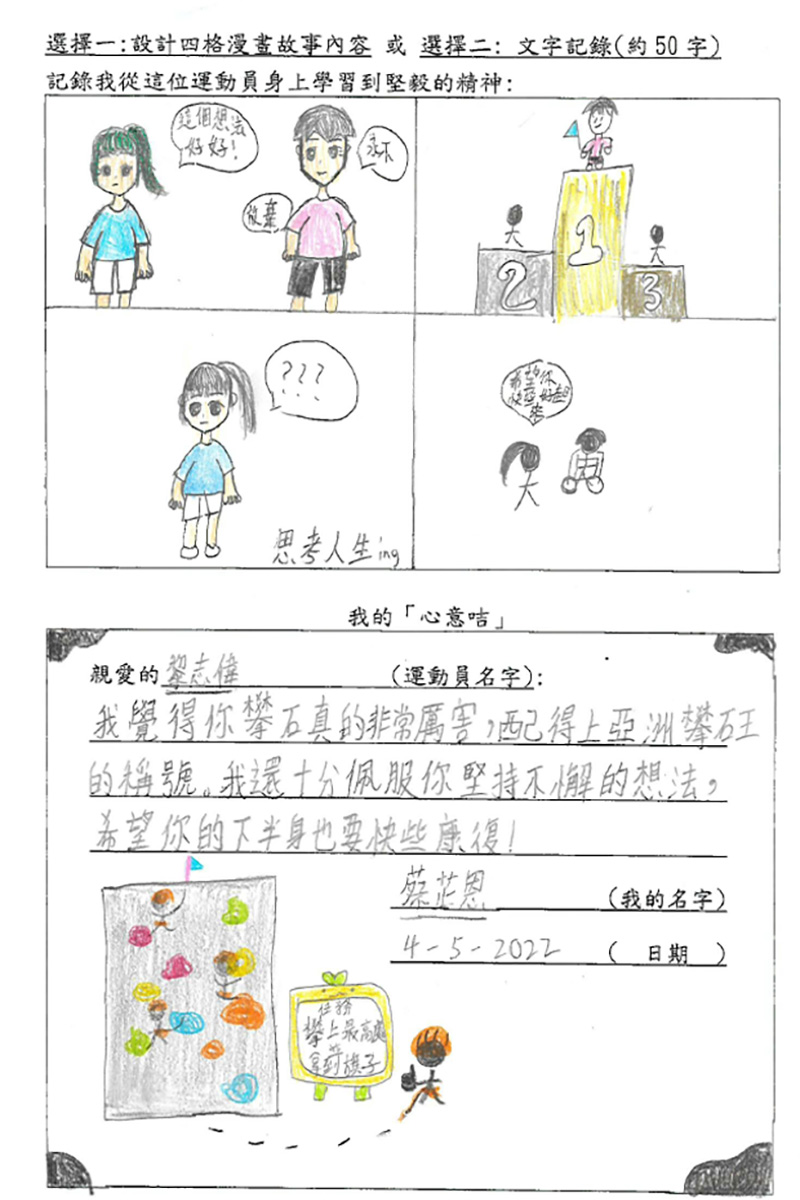 選擇一:設計四格漫畫故事內容 或 選擇二: 文字記錄(約 50 字)
記錄我從這位運動員身上學習到堅毅的精神:
這個想法
好好!
永不
放棄
1
2
3
???
思考人生ing
希望你
快些好起
來
我的「心意咭」
親愛的黎志偉 (運動員名字):
我覺得你攀石真的非常厲害,配得上亞洲攀石王
的稱號。我還十分佩服你堅持不懈的想法,
希望你的下半身也要快些康復!
蔡芷恩 (我的名字)
4-5-2022 ( 日期 )
任務
攀上最高處
拿到旗子